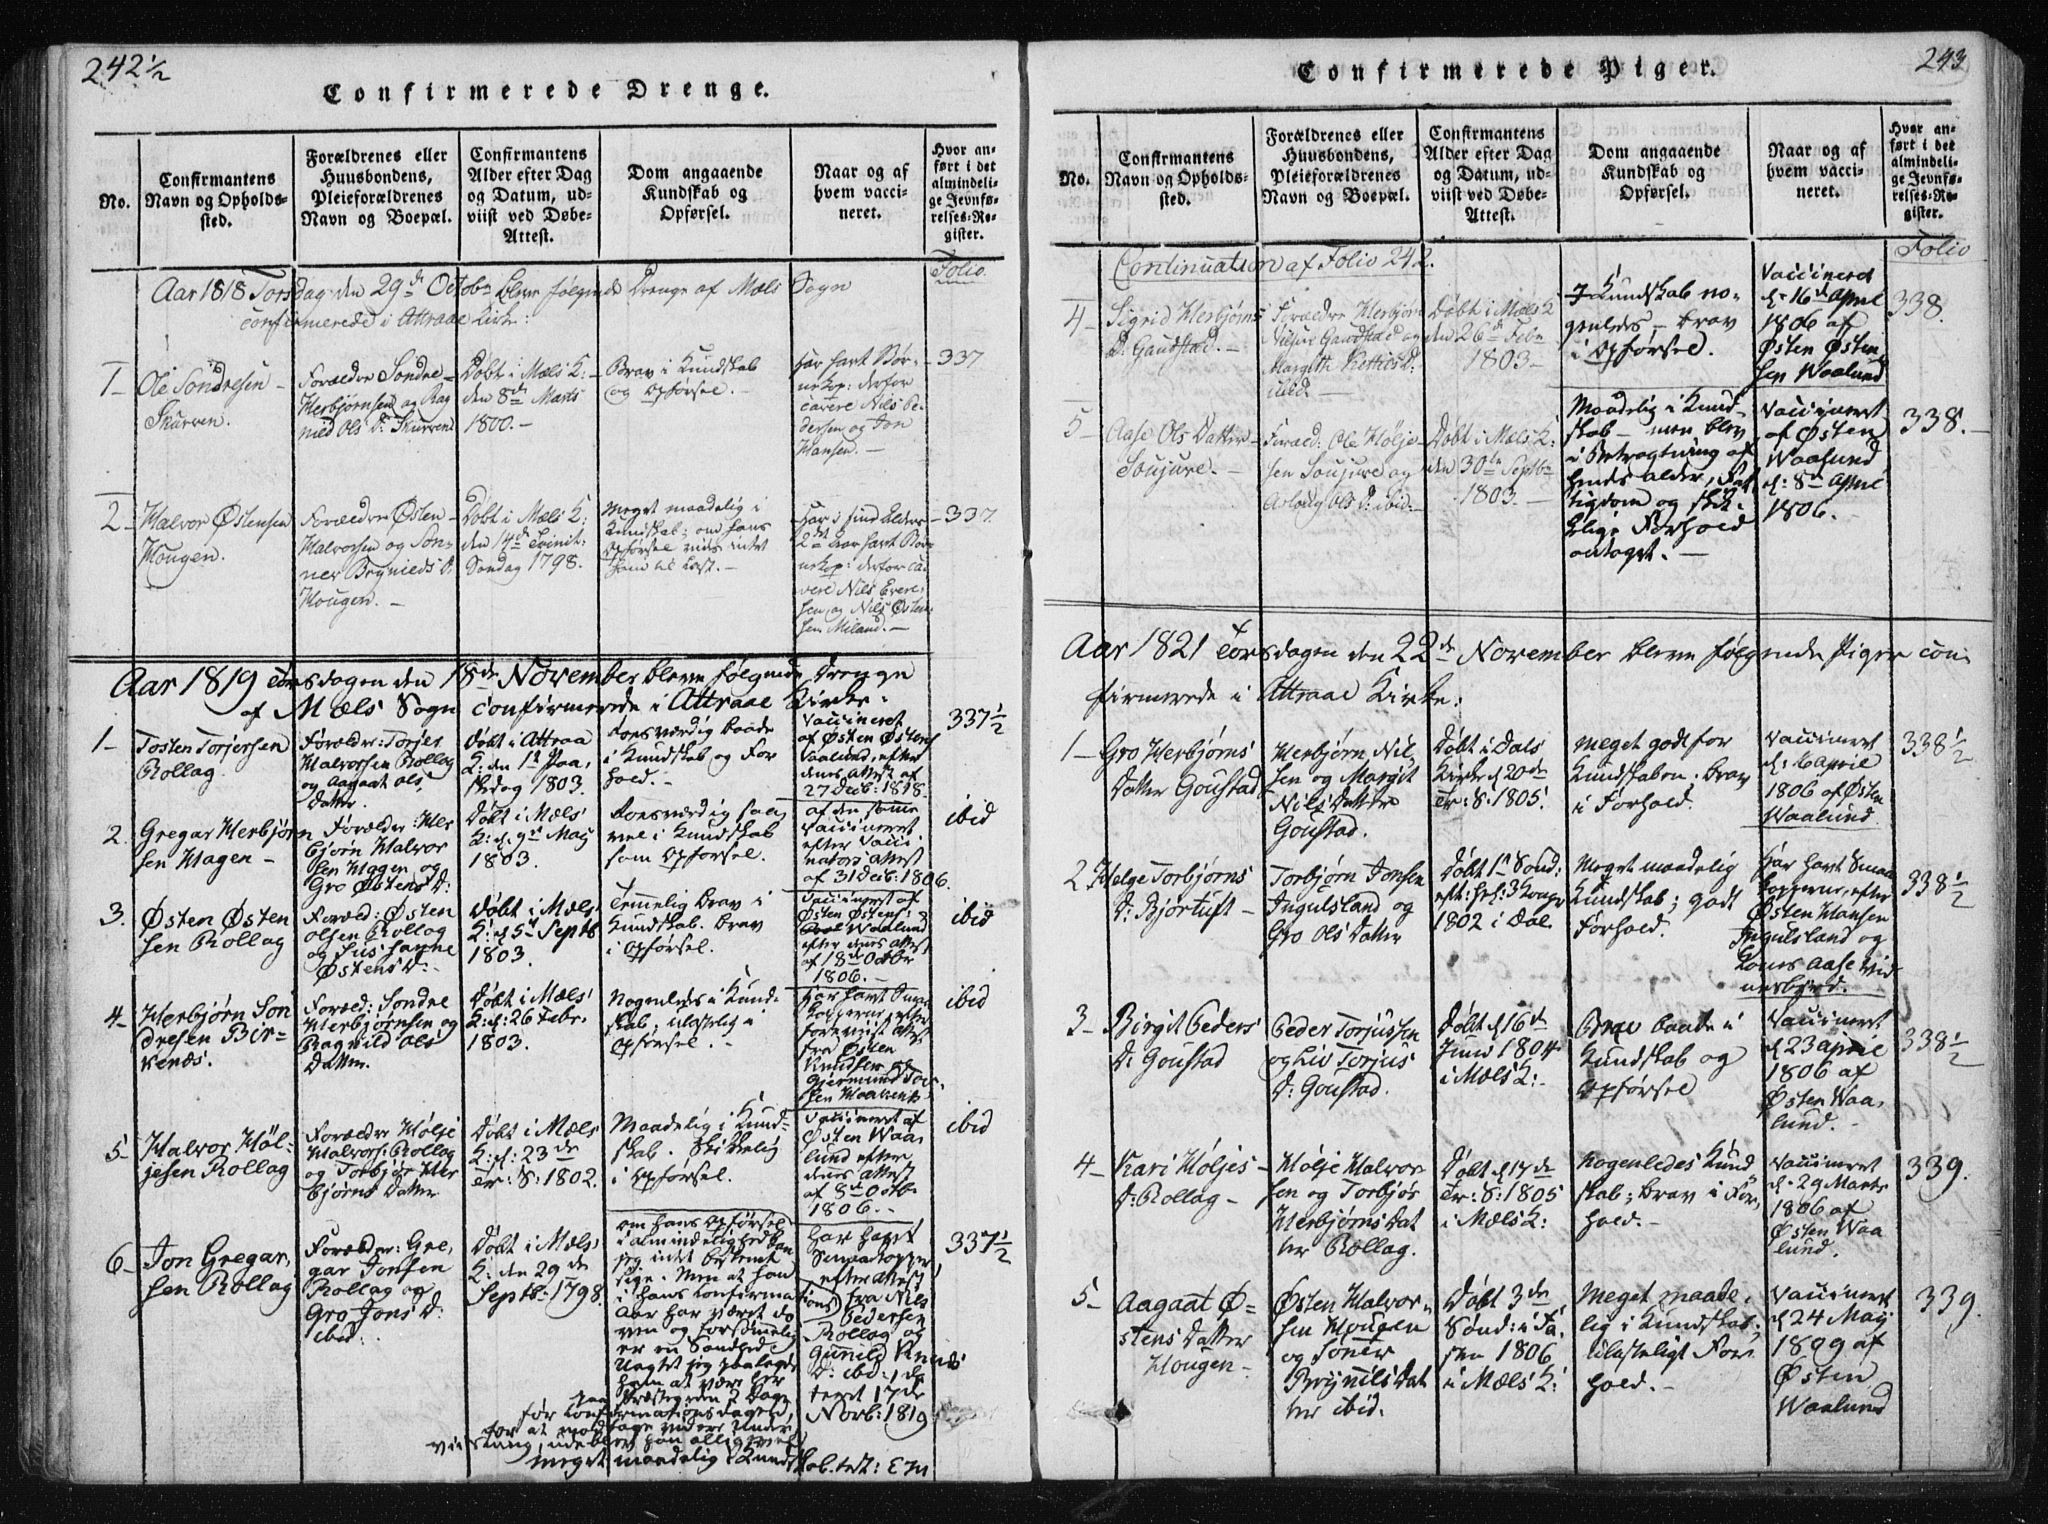 242½
Confirmerede Drenge.
No.
Confirmantens
Navn og Opholds-
sted.
Forældrenes eller
Huusbondens,
Pleieforældrenes
Navn og Boepæl.
Confirmantens
Alder efter Dag
og Datum, ud-
viist ved Døbe-
Attest.
Dom angaaende
Kundskab og
Opførsel.
Naar og af
hvem vacci-
neret.
Hvor an-
ført i det
almindeli-
ge Jevnfø-
relses-Re-
gister.
Folio
Aar 1818 Torsdag den 29de Octobr bleve følgende Drenge af Mæls Sogn
confirmerede i Attraae Kirke:
1-
Ole Sondresen
Skurven.
Forældre Sondre
Herbjørnsen og Rag
nild Ols D: Skurven
Døbt i Mæls K:
den 8de Marts
1800.-
Brav i Kundskab
og Opførsel.-
Har havt Bør-
nekop: derfor
cavere Nils Pe-
dersen og Jon
Hansen.-
337
2-
Halvor Østensen
Hougen.
Forældre Østen
Halvorsen og Tøn-
ner Brynieds D.
Hougen.-
Døbt i Mæls K:
den 14de Trinit:
Søndag 1798.
Meget maadelig i
Kundskab; om hans
Opførsel vides intet
som er Last.-
Har i sind Alders
2det Aar havt Bør-
nekop: derfor ca-
vere Nils Ever-
sen og Nils Østen-
sen Miland.-
337
Aar 1819 Torsdagen den 18de November bleve følgende Drenge
af Mæls Sogn confirmerede i Attraae Kirke:
1-
Tosten Torjersen
Rollag.
Forældre: Torjer
Halvorsen Rollag
og Aagaat Ols
Datter.
Døbt i Attraa
K: den 1ste Paa-
skedag 1803.
Forsværdig baade
i Kundskab og For
hold.-
Vaccineret
af Østen Østens
Vaalund, efter
dens Attest af
27 Decb: 1818.
337½
2.
Gregar Herbjørn
sen Hagen-
Forældre: Her
bjørn Halvor
sen Hagen og
Gro Østens D:
Døbt i Mæls
K: d. 9de May
1803.
Forsværdig saa
vel i Kundskab
som Opførsel.
af den samme
Vaccineret
efter Vacci
nators Attest
af 31 Decb: 1806.
ibid
3.
Østen Østen
sen Rollag
Foræld: Østen
Olsen Rollag
og Sushanne
Østens D:-
Døbt i Mæls
K: d. 5te Septb
1803.
Temmelig brav i
Kundskab. Brav
i Opførsel.
Vaccineret af
Østen Østens:
Waalund
efter dens Attest
af 18de Octbr
1806.-
ibid
4-
Herbjørn Son
dresen Bir-
kenæs.
Foræld: Sondre
Herbjørnsen og
Ragnild Ols
Datter.
Døbt i Mæls
K: d: 26 Febr.
1803.
Nogenleds i Kund-
skab; ulastelig i
Opførsel.-
Har havt Smaa
kopperne, efter
foreviist Attest
fra Østen
Knudsen og
Gjermund Tor-
sen Haavenes.
ibid
5-
Halvor Høl-
jesen Rollag
Forældre Hølje
Halvors: Rollag
og Torbjør Her
bjørns Datter
Døbt i Mæls
K: d: 23de
Tr: S: 1802.
Maadelig i Kund-
skab. Skikkelig
i Opførsel.
Vaccineret af
Østen Waa
lund efter
dens Attest
af 8de Octb:
1806.-
ibid
6-
Jon Gregar-
sen Rollag
Forældre: Gre-
gar Jonsen
Rollag og
Gro Jons D:
ibid:
Døbt i Mæls
K: den 29de
Septb: 1798.
om hans Opførsel
i almindelighed kan
jeg intet bestemt
sige. Men at han
i hans Confirmations
Aar har været do
ven og forsømmelig
er en Sandhed.
Uagtet jeg paalagde
ham at være her
paa Præstegaarden 2 Dage
før Confirmationsdagen,
for at modtage videre Under-
viisning, udeblev han alligevel
meget maadelig i Kundskab. test: EM
Har havt
Smaakopper
efter Attest
fra Nils
Pedersen
Rollag og
Gunnild Knuds
D: ibid, da
teret 17de
Novb: 1819
337½
243
Confirmerede Piger.
No.
Confirmantens
Navn og Opholds-
sted.
Forældrenes eller
Huusbondens,
Pleieforældrenes
Navn og Boepæl.
Confirmantens
Alder efter Dag
og Datum, ud-
viist ved Døbe-
Attest.
Dom angaaende
Kundskab og
Opførsel.
Naar og af
hvem vacci-
neret.
Hvor an-
ført i det
almindeli-
ge Jevnfø-
relses-Re-
gister.
Folio
Continuation af Folio 242.
4-
Sigrid Herbjørns
D: Gaudstad.-
Forældre Herbjørn
Nilsen Gaudstad og
Margitte Kittils D:
ibid.-
Døbt i Mæls K
den 26de Febr
1803.-
I Kundskab no-
genleds - brav
i Opførsel.
Vaccineret
d. 16de April
1806 af
Østen Østen
sen Waalund
338.
5-
Aase Ols Datter
Soujure.-
Foræld: Ole Hølje-
sen Soujure og
Aslaug Ols D: ibid.-
Døbt i Mæls K:
den 30te Septbr
1803.-
Maadelig i Kund-
skab - men blev
i Betragtning af
hendes alder, Fat
tigdom og skik-
kelige Forhold
antaget.-
Vaccineret
af Østen
Waalund
d: 8de April
1806.
338.-
Aar 1821 Torsdagen den 22de November bleve følgende Piger con-
firmerede i Attraae Kirke:
1-
Gro Herbjørns
Datter Goustad
Herbjørn Nil-
sen og Margit
Nils Datter
Goustad.
Døbt i Dals
Kirke d. 20de
Tr: S: 1805.
Meget godt for
Kundskaben. brav
i Forhold.
Vaccineret
d. 6 April
1806 af Østen
Waalund.
338½
2.
Helge Torbjørns
D: Bjørtuft-
Torbjørn Jonsen
Ingulsland og
Gro Ols Datter
Døbt 1ste Sønd:
eft: hel: 3 Konger
1802 i Dal.
Meget maadelig
Kundskab; godt
Forhold.
Har havt Smaa
kopperne, efter
Østen Hansen
Ingulsland og
Lones Aase Vid
nesbyrd.
338½
3-
Birgit Peders
D: Goustad
Peder Torjussen
og Liv Torjus
D: Goustad.
Døbt d 16de
Juni 1804
i Mæls K:-
Brav baade i
Kundskab og
Opførsel
Vaccineret
d 23 april
1806 af
Østen Waa-
lund.-
338½
4-
Kari Høljes
D: Rollag-
Hølje Halvor
sen og Torbjør
Herbjørns Dat
ter Rollag.
Døbt d 17de
Tr: S: 1805
i Mæls K:
Nogenledes Kund
skab; brav i For-
hold.-
Vaccineret
d. 29 Marts
1806 af
Østen Waa
lund.
339.
5-
Aagaat Ø-
stens Datter
Hougen-
Østen Halvor-
sen Hougen
og Toner
Brynils Dat
ter ibid.
Døbt 3de
Sønd: i Fa-
sten 1806
i Mæls K:
Meget maade-
lig i Kundskab;
ulasteligt For-
hold.-
Vaccineret
d 24 May
1809 af
Østen
Waalund
339.